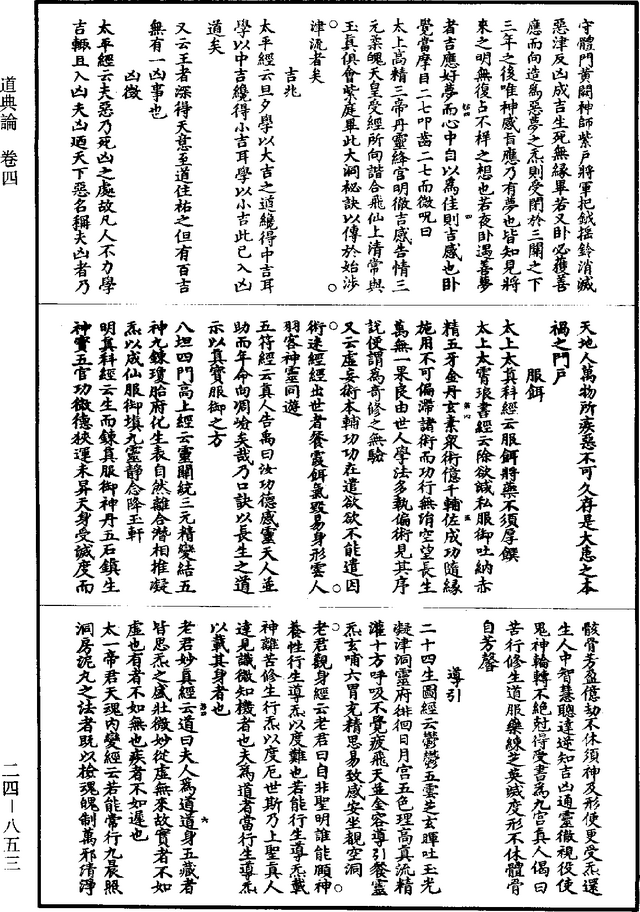 守體門黃闕神師紫戶將軍把鉞搖鈴消滅
惡津反凶成吉生死無緣畢若又卧必獲善
應而向造爲惡夢之炁則受閉於三關之下
三年之後唯神感旨應乃有夢也皆知見將
來之明無復占不祥之想也若夜卧遇善夢
者吉應好夢而心中自以爲佳則吉感也卧
覺當摩目二七叩齒二七而微呪曰
太上高精三帝丹靈絳宮明徹吉感告情三
元柔魄天皇受經所向諧合飛仙上清常與
玉真俱會紫庭畢此大洞祕訣以傳於始涉
津流者矣
吉兆
太平經云旦夕學以大吉之道纔得中吉耳
學以中吉纔得小吉耳學以小吉此已入凶
道矣
又云王者深得天意至道往祐之但有百吉
無有一凶事也
凶徵
太平經云夫惡乃死凶之處故凡人不力學
吉輒且入凶夫凶迺天下惡名稱夫凶者乃
天地人萬物所疾惡不可久存是大患之本
禍之門戶
服餌
太上太真科經云服餌將藥不須厚饌
太上太霄琅書經云除欲誡私服御吐納赤
精五牙金丹玄素衆術億千輔佐成功隨緣
施用不可偏滯諸術而功行無階空望長生
萬無一果良由世人學法多執偏術見其序
說便謂爲奇修之無驗
又云虛妄術本輔功功在遣欲欲不能遣因
術迷經經出世者餐霞餌氣毀易身形雲人
羽客神靈同遊
五符經云真人告禹曰汝功德感靈天人並
助而年命向凋嶮矣哉乃口訣以長生之道
示以真寶服御之方
八坦四門高上經云靈關統三元精變結五
神九鍊瓊胎府化生表自然離合潛相推凝
炁以成仙服御填九靈靜念降玉軒
明真科經云生而鍊真服御神丹五石鎮生
神寶五官功微德狹運未昇天身受誠度而
骸骨芳盈億劫不休須神及形便更受炁還
生人中智慧聰達逆知吉凶通靈徹視役使
鬼神輪轉不絶尅得受書爲九宮真人偈曰
苦行修生道服藥練芝英滅度形不休體骨
自芳馨
導引
二十四生圖經云鬱鬱五雲芝玄暉吐玉光
凝津洞靈府徘徊日月宮五色理高真流精
灌十方呼吸不覺疲飛天並金容導引餐靈
炁玄哺六胃充精思易致感安坐觀空洞
老君觀身經云老君曰自非聖明誰能願神
養性行生導炁以度難也若能行生導炁載
神離苦修生行炁以度厄世斯乃上聖真人
達見識微知機者也夫爲道者當行生導炁
以載其身者也
老君妙真經云道曰夫人爲道道身五藏者
皆思炁之盛壯微妙從虛無來故實者不如
虛也有者不如無也疾者不如遲也
太一帝君天魂內變經云若能常行九晨照
洞房泥丸之法者既以檢魂魄制萬邪清淨
道典論 卷四
二四—八五三